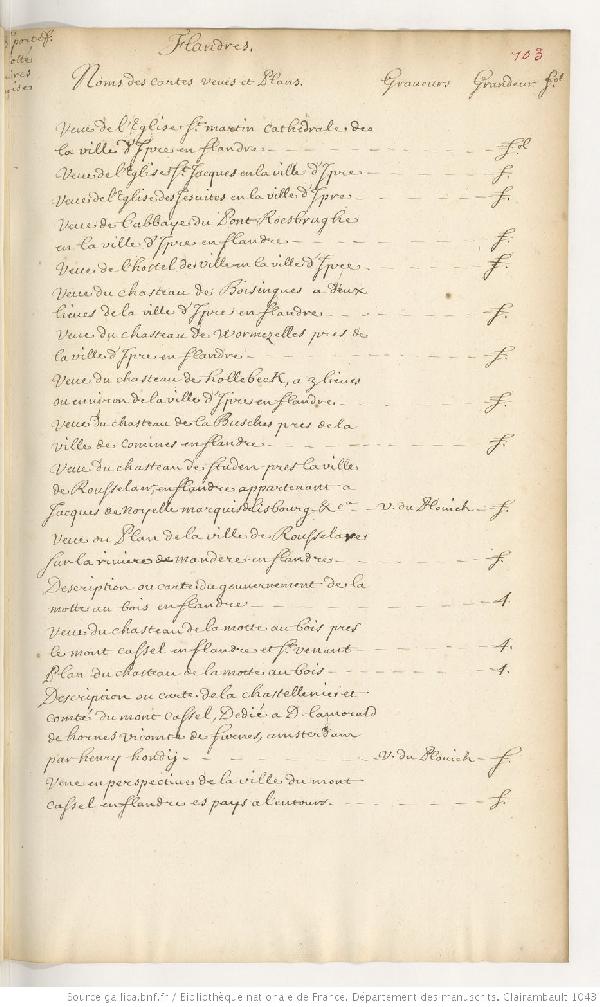 Flandres.
103
Noms des cartes veues et Plans. Graueurs Grandeur
Veue de l'Eglise St. martin cathedrale de
la ville d'Ipre en flandre
Veue de l'Eglise St. Jacques en la ville d'Ipre f.
Veue de l'Eglise des Jesuites en la ville d'Ipre f.
Veue de l'abbaye du Pont Roesbrughe
en la ville d'Ipre en flandre f.
Veue de l'hostel de ville en la ville d'Ipre f.
Veue du chasteau de Boisingues a deux
lieues de la ville d'Ipre en flandre f.
Veue du chasteau de Wormezelles pres de
la ville d'Ipre en flandre f.
Veue du chasteau de hollebeck, a 3 lieues
ou environ de la ville d'Ipre en flandre f.
Veue du chasteau de la Busches pres de la
ville de comines en flandre f.
Veue du chasteau de studen pres la ville
de Rousselar, en flandre appartenant a
Jacques de Noyelle marquis de lisbourg &ca v. du Plouich f.
Veue ou Plan de la ville de Rousselare
sur la riviere de mandere en flandre f.
Description ou carte du gouvernement de la
motte au bois en flandre 4.
Veue du chasteau de la motte au bois pres
le mont cassel en flandre et St. venant 4.
Plan du chasteau de la motte au bois 4.
Description ou carte de la chastellenie et
comté du mont cassel, Dedié a D. lamould
de hornes vicomte de furnes, amsterdam
par henry hondij v. du Plouich f.
Veue en perspective de la ville du mont
cassel en flandre es pays a l'entours. f.
Source gallica.bnf.fr / Bibliothèque nationale de France. Département des manuscrits. Clairambault 1043